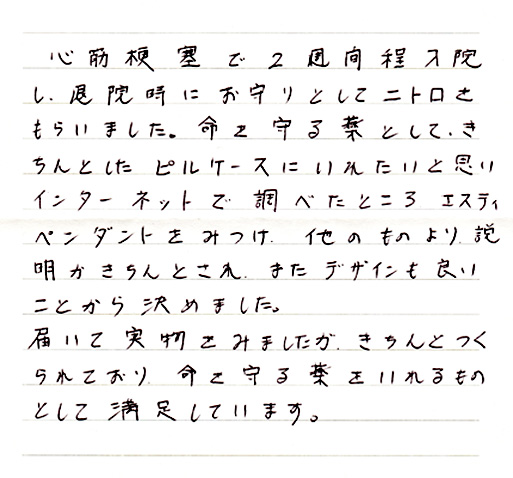 心筋梗塞で2週間程入院
し、退院時にお守りとしてニトロを
もらいました。命を守る薬として、き
ちんとしたピルケースにいれたいと思い
インターネットで調べたところエスティ
ペンダントをみつけ、他のものより、説
明がきちんとされ、またデザインも良い
ことから決めました。
届いて実物をみましたが、きちんとつく
られており、命を守る薬をいれるもの
として満足しています。